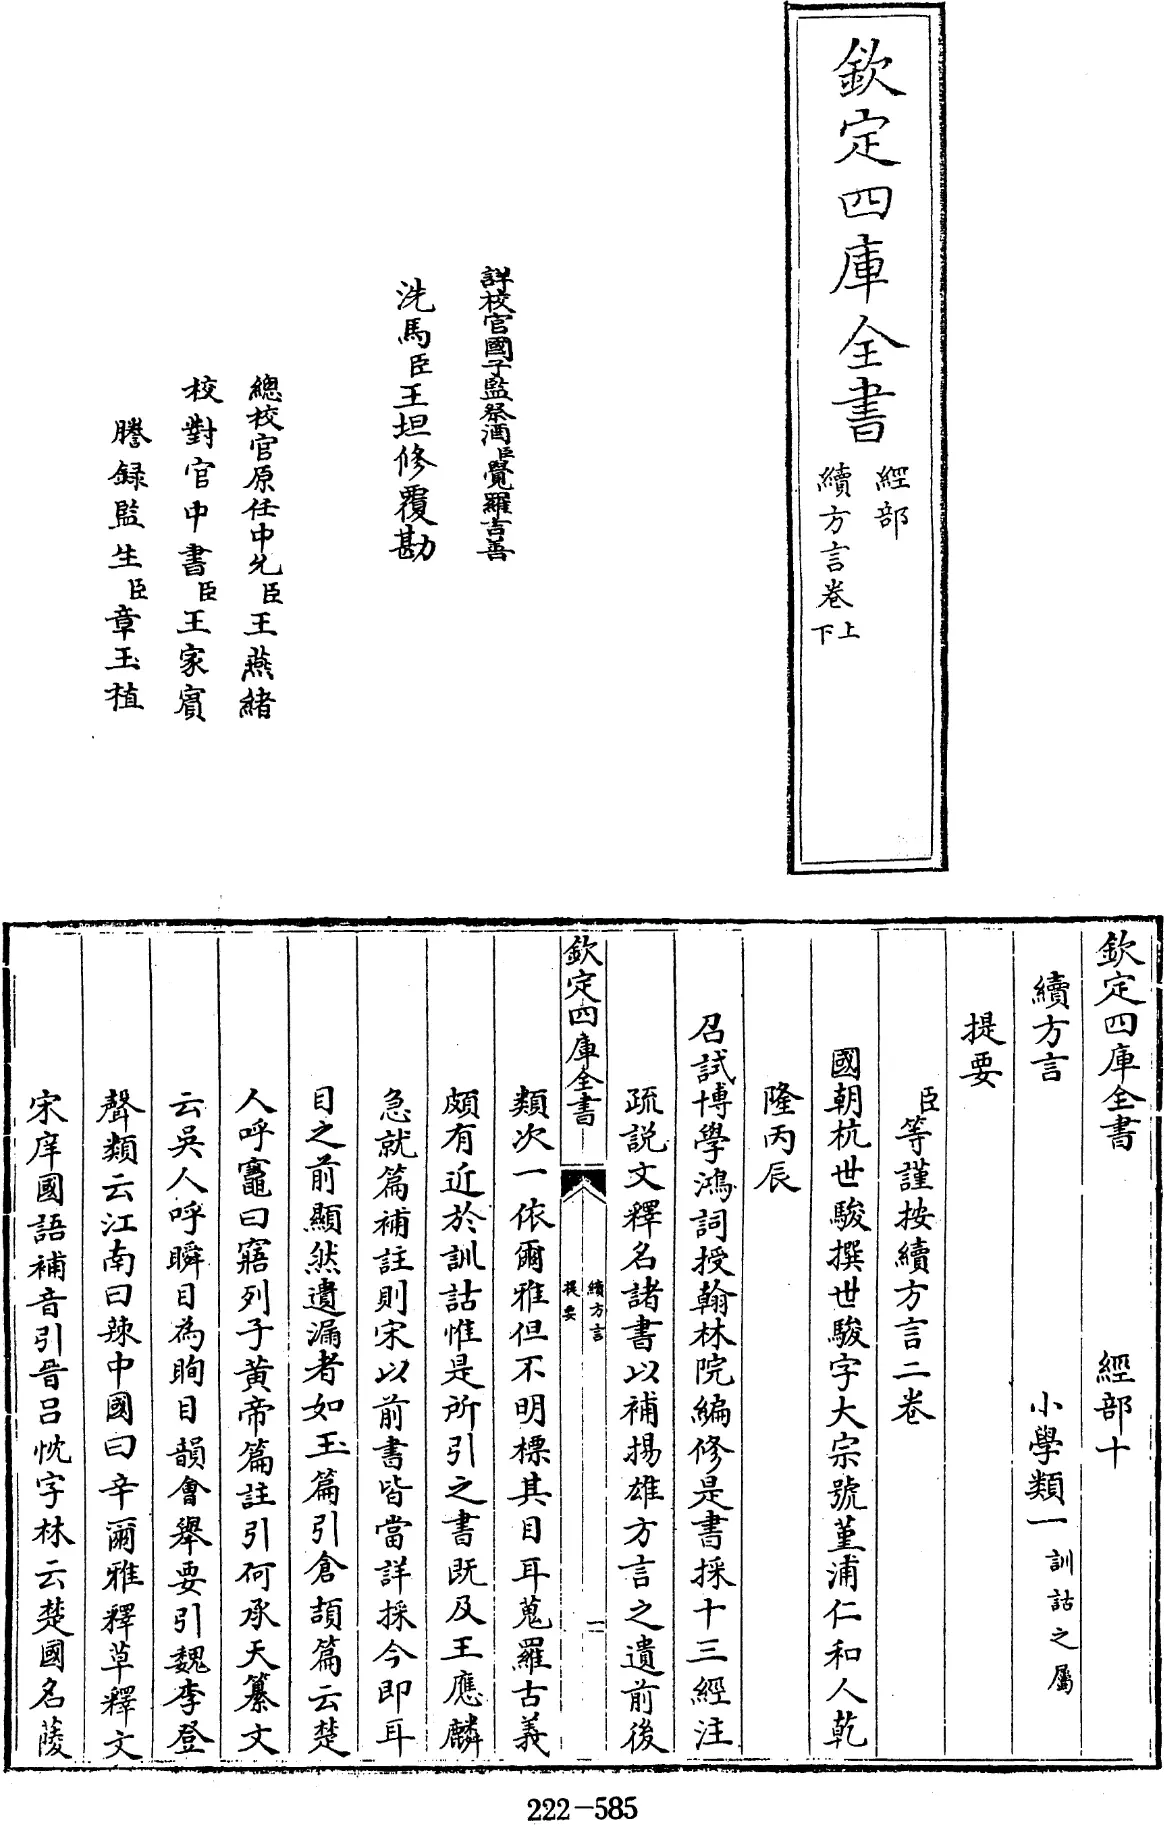 欽定四庫全書
經部
續方言卷上
下
詳校官國子監祭酒臣覺羅吉善
洗馬臣王坦修覆勘
總校官原任中允臣王燕緒
校對官中書臣王家賓
謄録監生臣章玉植
欽定四庫全書 經部十
續方言 小學類一訓詁之屬
提要
臣等謹按續方言二卷
國朝杭世駿撰世駿字大宗號堇浦仁和人乾
隆丙辰
召試博學鴻詞授翰林院編修是書採十三經注
疏説文釋名諸書以補揚雄方言之遺前後
欽定四庫全書
續方言
提要
一
類次一依爾雅但不明標其目耳蒐羅古義
頗有近於訓詁惟是所引之書既及王應麟
急就篇補註則宋以前書皆當詳採今即耳
目之前顯然遺漏者如玉篇引倉頡篇云楚
人呼竈曰寣列子黄帝篇註引何承天纂文
云吳人呼瞬目為眴目韻會舉要引魏李登
聲類云江南曰辣中國曰辛爾雅釋草釋文
宋庠國語補音引晉呂忱字林云楚國名蔆
222-585